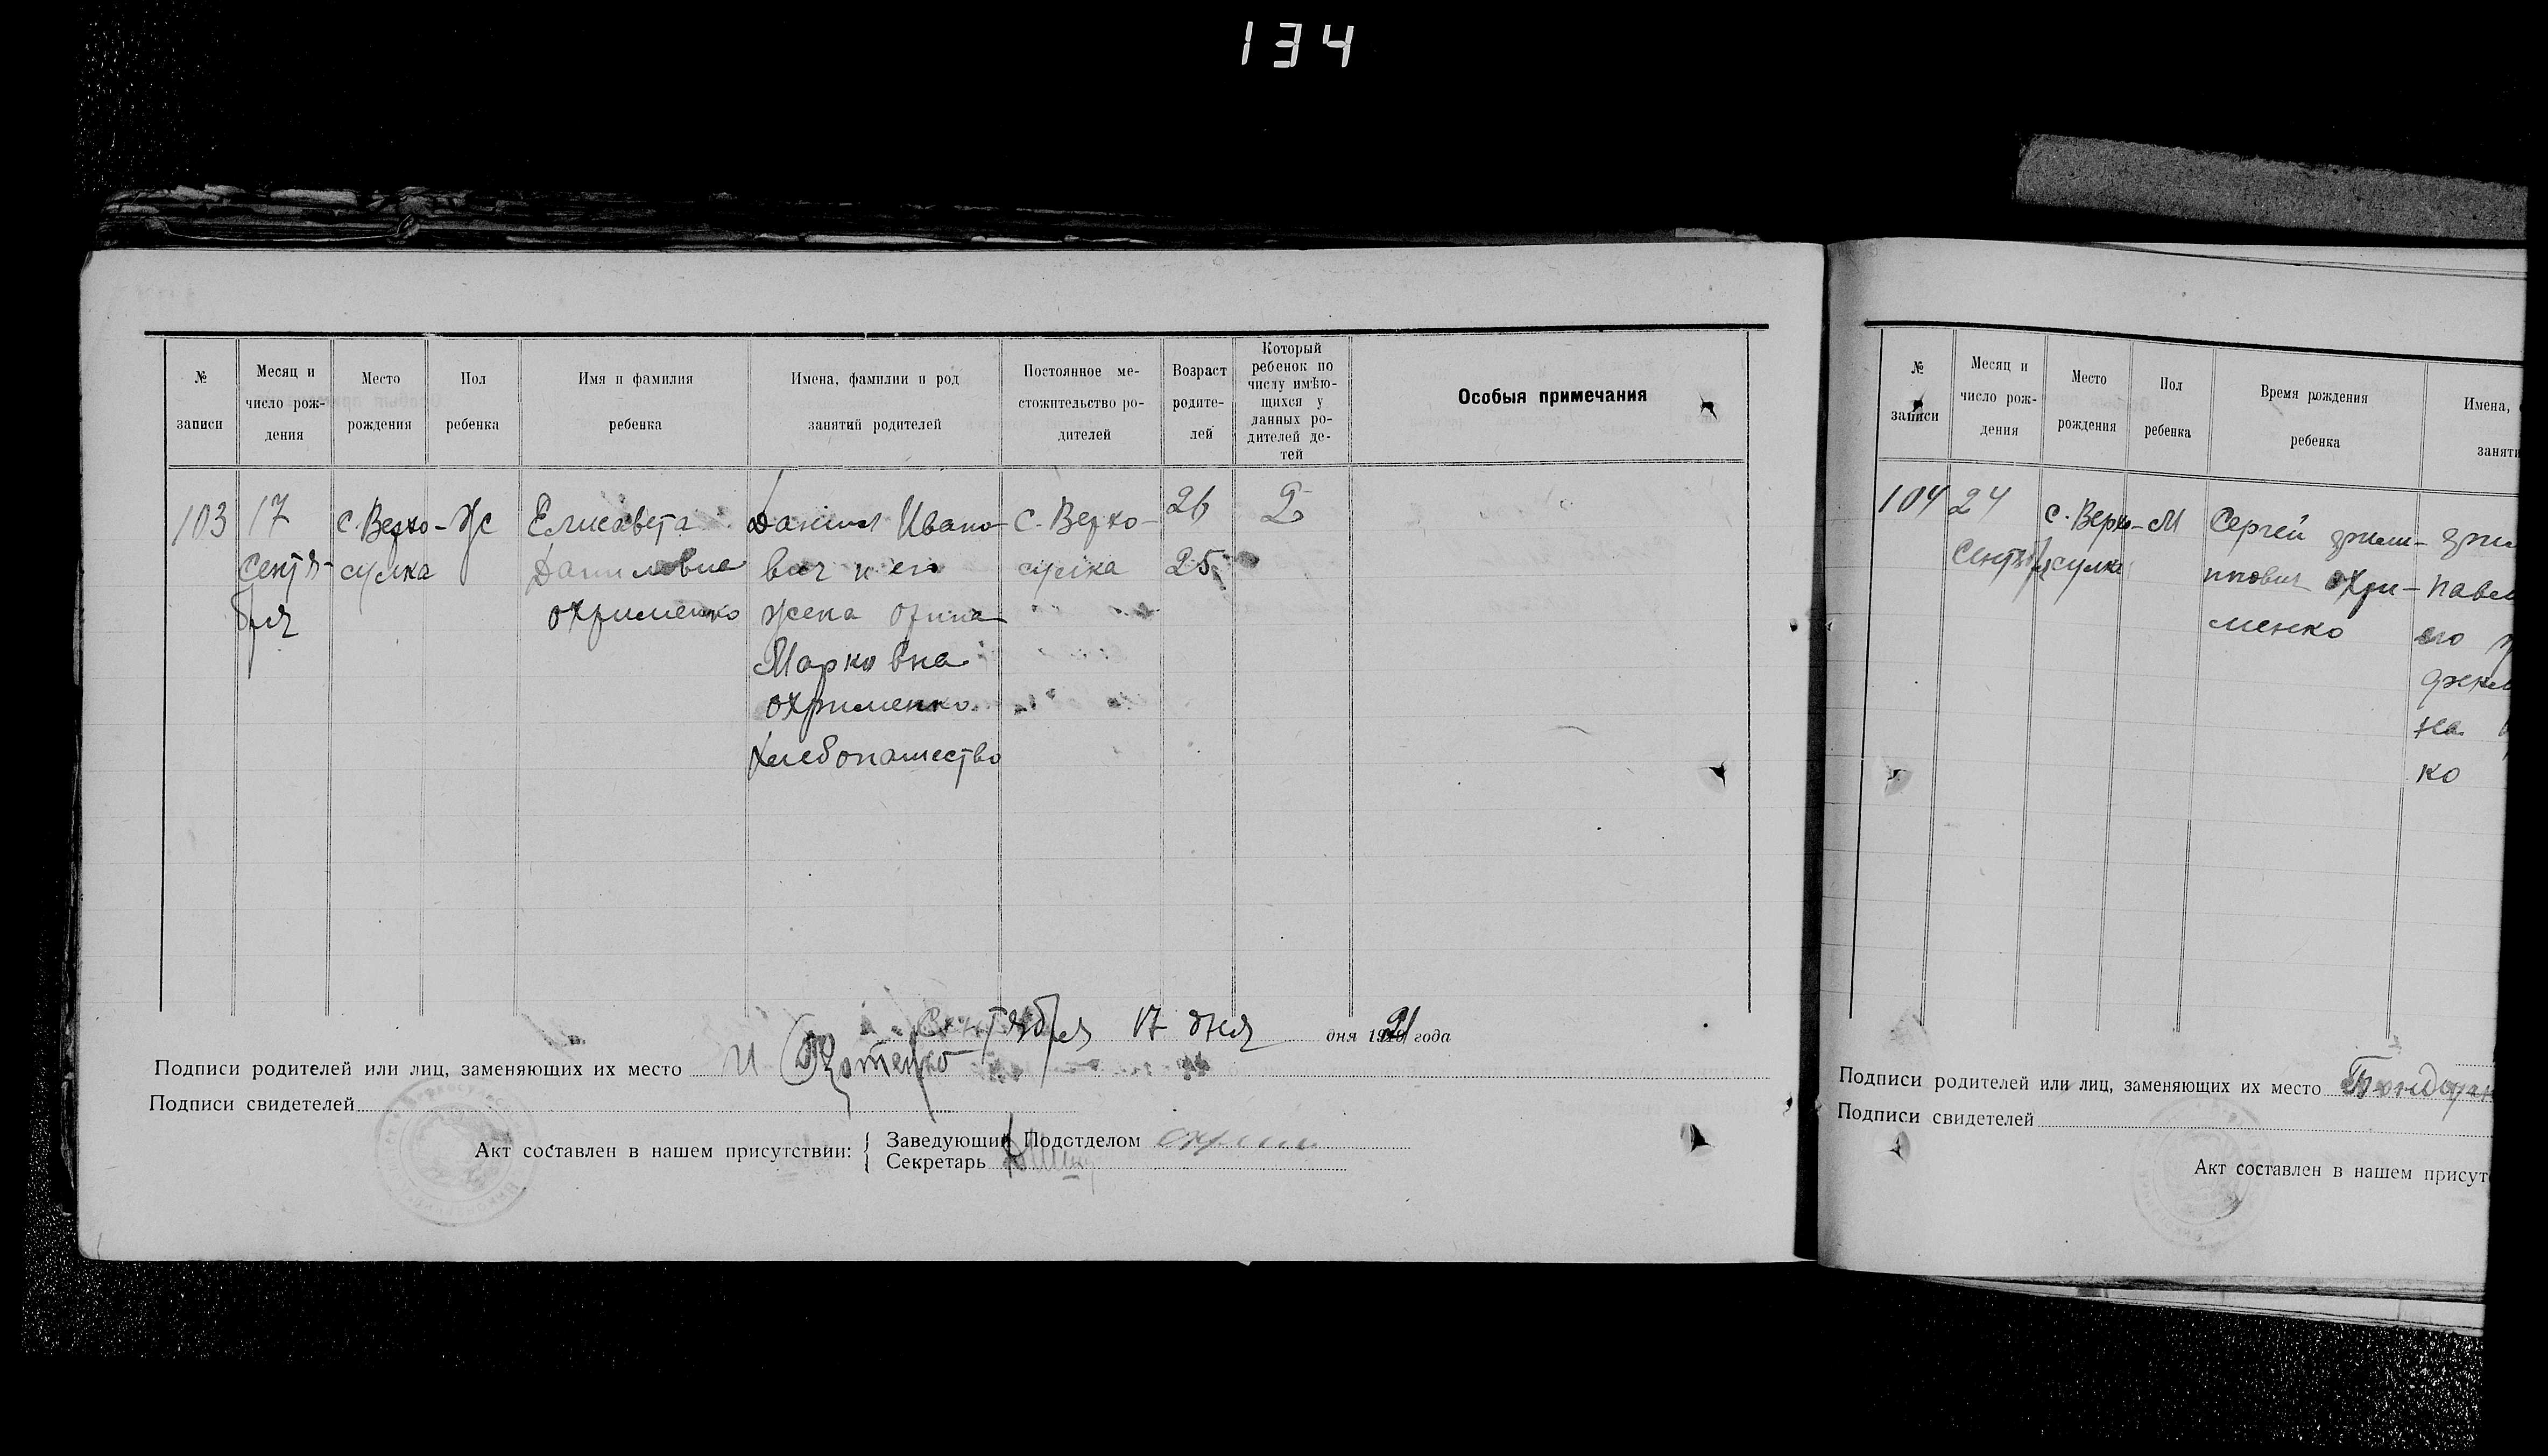 134
№ записи
Месяц и число рож-дения
Место рождения
Пол ребенка
Имя и фамилия ребенка
Имена, фамилии и род занятий родителей
Постоянное ме-стожительство ро-дителей
Возраст родите-лей
Который ребенок по числу имѣю-щихся у данных ро-дителей де-тей
Особыя примечания
103
17
Сентя-
бря
с. Верхо-
сулка
Ж
Елисавета
Даниловна
Охрименко
Даниил Ивано
вич и его
жена Орина
Марковна
Охрименко
Хлебопашество
с. Верхо-
сулка
26
25
2
Сентября 17 дня дня 1921 года
Подписи родителей или лиц, заменяющих их место
Подписи свидетелей
Акт составлен в нашем присутствии:
Заведующий Подотделом
Секретарь
№ записи
Месяц и число рож-дения
Место рождения
Пол ребенка
Время рождения ребенка
Имена,
заняти
104
24
Сентя
с. Верхо-
сулка
М
Сергей
Охри-
менко
Павл
его
на
ко
Подписи родителей или лиц, заменяющих их место
Подписи свидетелей
Акт составлен в нашем присут